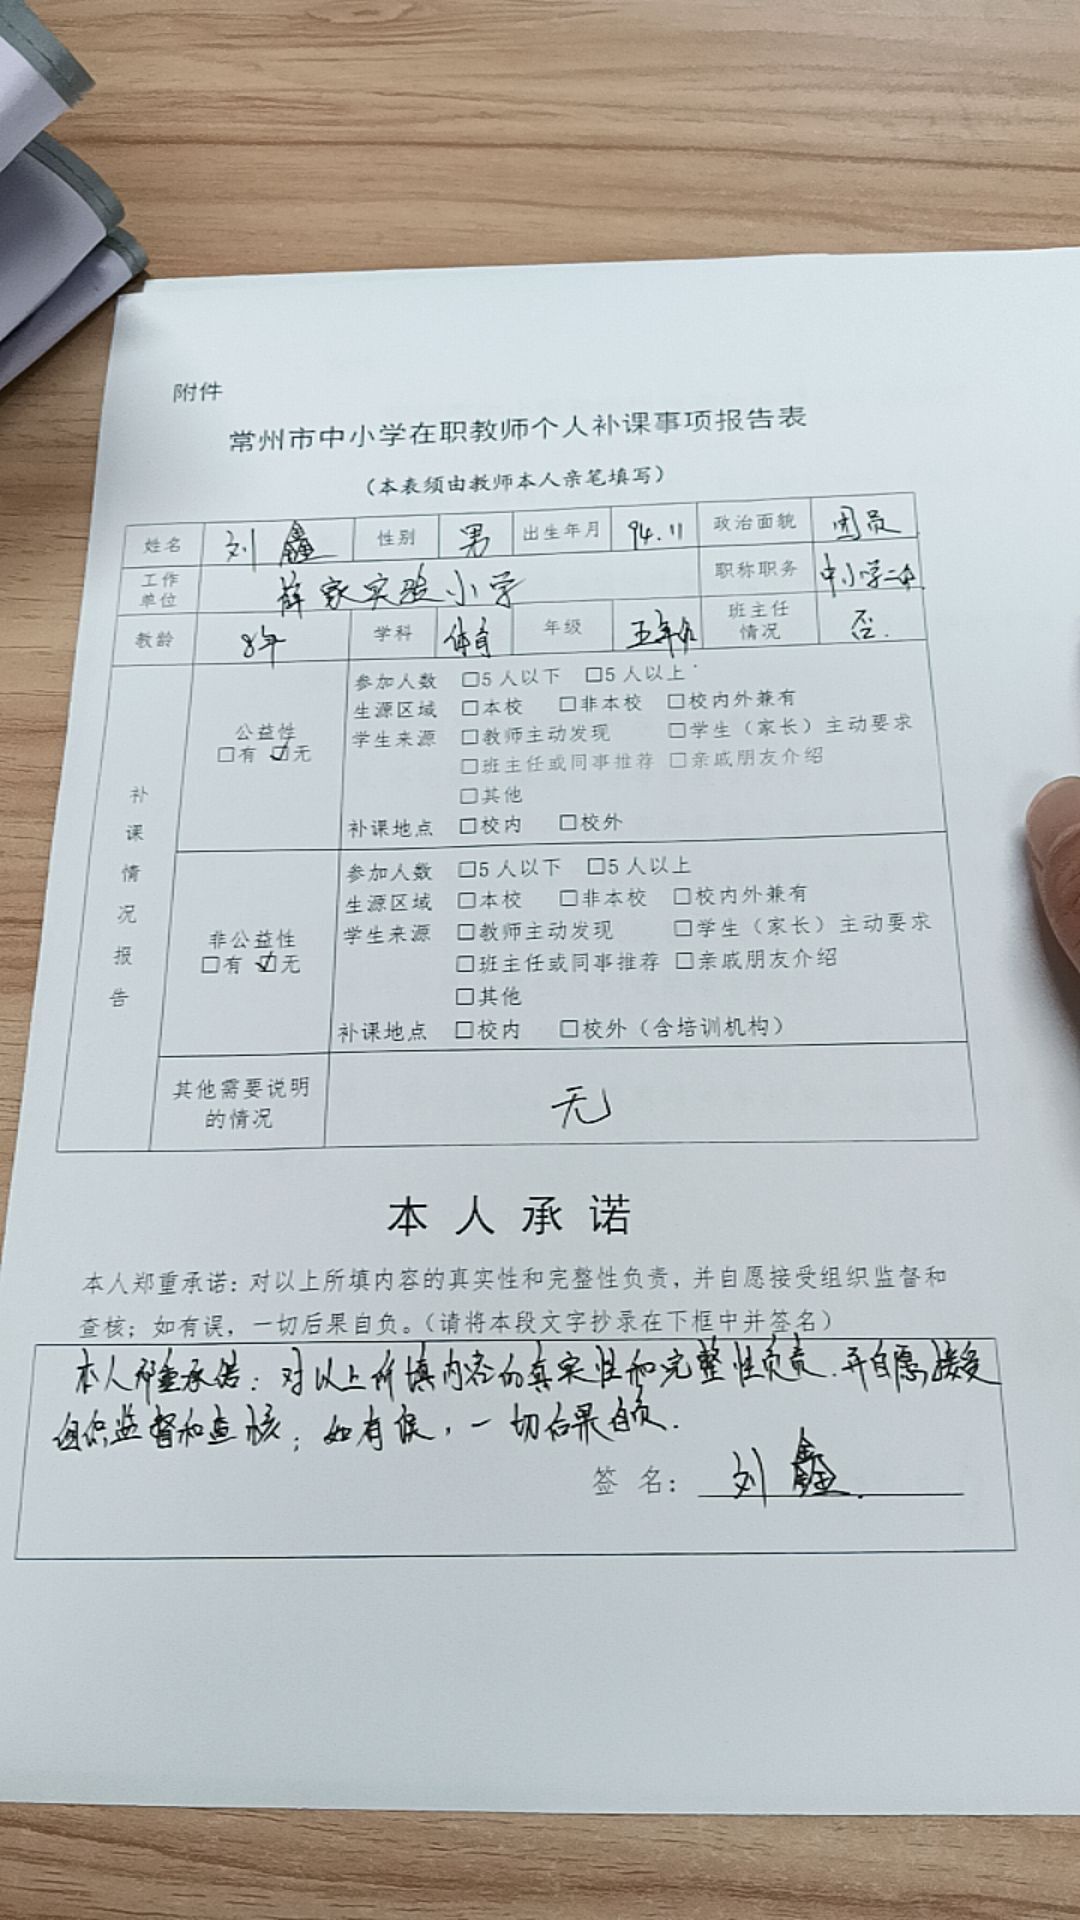 附件
常州市中小学在职教师个人补课事项报告表
（本表须由教师本人亲笔填写）
姓名 刘鑫 性别 男 出生年月 94.11 政治面貌 团员
工作单位 薛家实验小学 职称职务 中小学二级
教龄 8年 学科 体育 年级 五年级 班主任情况 否.
补课情况报告
公益性
□有 ☑无
参加人数 □5人以下 □5人以上
生源区域 □本校 □非本校 □校内外兼有
学生来源 □教师主动发现 □学生（家长）主动要求
□班主任或同事推荐 □亲戚朋友介绍
□其他
补课地点 □校内 □校外
非公益性
□有 ☑无
参加人数 □5人以下 □5人以上
生源区域 □本校 □非本校 □校内外兼有
学生来源 □教师主动发现 □学生（家长）主动要求
□班主任或同事推荐 □亲戚朋友介绍
□其他
补课地点 □校内 □校外（含培训机构）
其他需要说明的情况 无
本人承诺
本人郑重承诺：对以上所填内容的真实性和完整性负责，并自愿接受组织监督和
查核；如有误，一切后果自负。（请将本段文字抄录在下框中并签名）
本人郑重承诺：对以上所填内容的真实性和完整性负责.并自愿接受
组织监督和查核；如有误，一切后果自负.
签名：刘鑫.